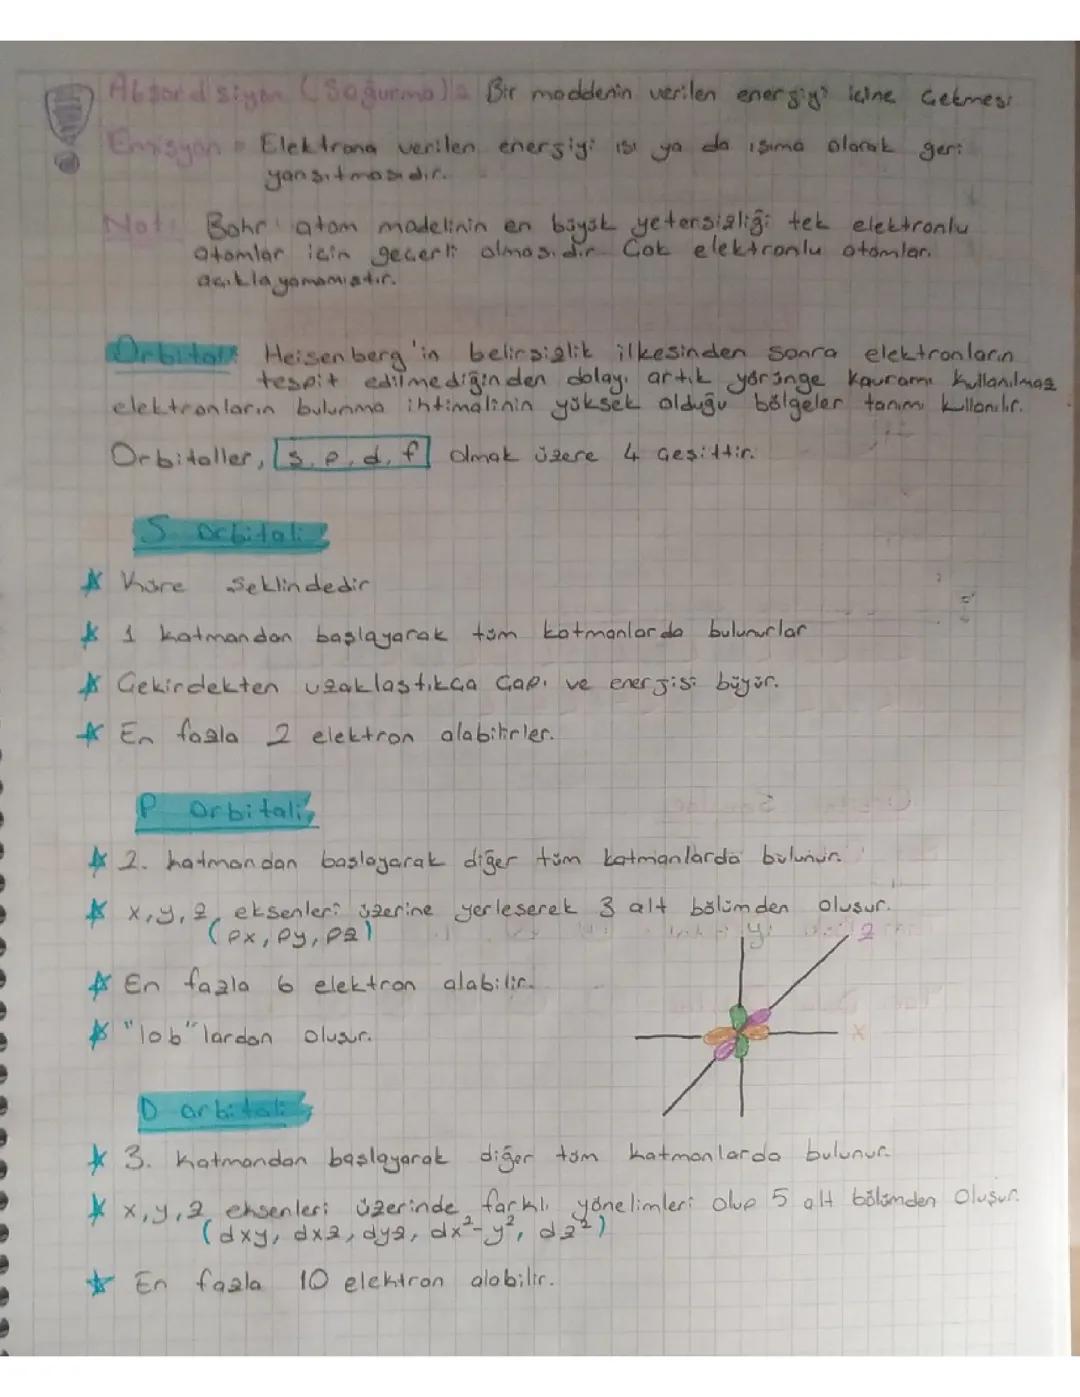 Absordsiyon (Soğurma): Bir maddenin verilen enerjiyi içine Çekmesi
Emisyon = Elektrona verilen enerjiyi ısı ya da ışıma olarak geri
yansıtmasıdır.
Not: Bohr atom modelinin en büyük yetersizliği tek elektronlu
atomlar için geçerli olmasıdır. Çok elektronlu atomları
açıklayamamıştır.
Orbital: Heisenberg'in belirsizlik ilkesinden sonra elektronların
tespit edilmediğinden dolayı artık yörünge kavramı kullanılmaz
elektronların bulunma ihtimalinin yüksek olduğu bölgeler tanımı kullanılır.
Orbitaller, s, p, d, f olmak üzere 4 çeşittir.
S Orbitali
Küre Şeklindedir
1 katmandan başlayarak tüm katmanlarda bulunurlar
Çekirdekten uzaklaştıkça Çapı ve enerjisi büyür.
En fazla 2 elektron alabilirler.
P Orbitali
2. katmandan başlayarak diğer tüm katmanlarda bulunur.
x, y, z, eksenleri üzerine yerleşerek 3 alt bölümden oluşur.
(px, py, pz)
y z
En fazla 6 elektron alabilir.
"lob"lardan oluşur.
x
D orbitali
3. katmandan başlayarak diğer tüm katmanlarda bulunur.
x, y, z eksenleri üzerinde farklı yönelimleri olup 5 alt bölümden Oluşur.
(dxy, dxz, dyz, dx²-y², dz²)
En fazla 10 elektron alabilir.